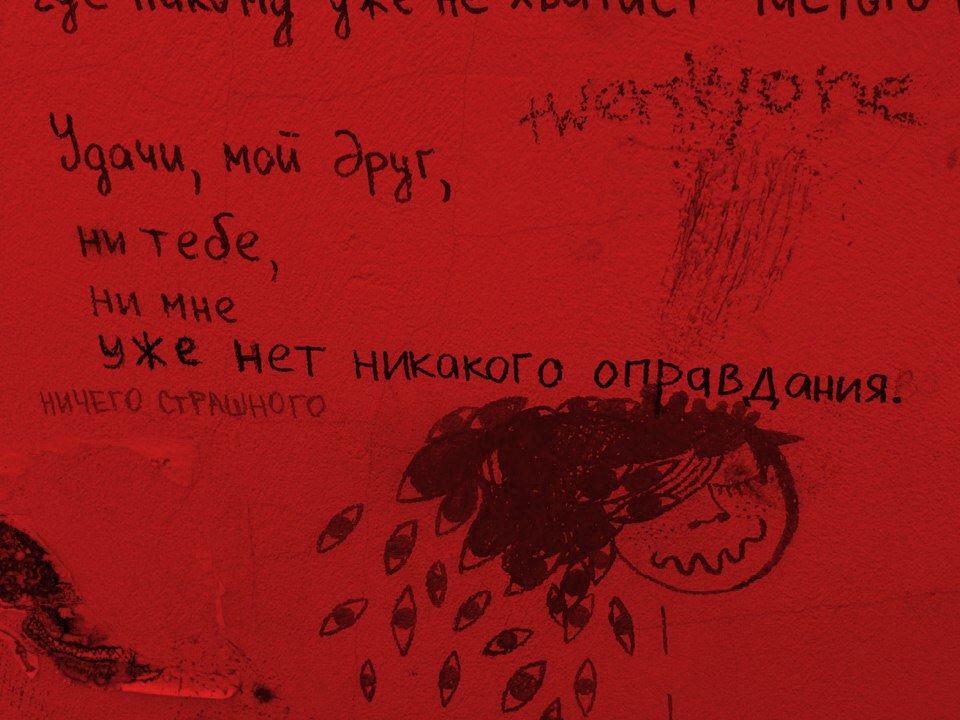 где никому уже не хватит чистого
Удачи, мой друг,
ни тебе,
ни мне
уже нет никакого оправдания.
НИЧЕГО СТРАШНОГО